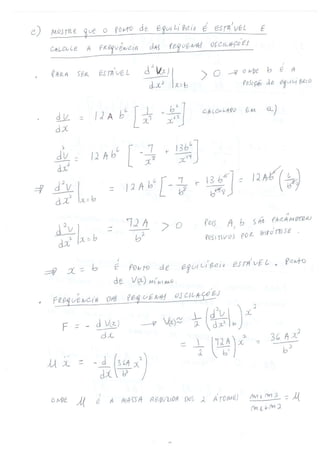 c) MOSTRE QUE O PONTO DE EQUILÍBRIO É ESTÁVEL E
CALCULE A FREQUÊNCIA DAS PEQUENAS OSCILAÇÕES
• PARA SER ESTÁVEL d²V(x)/dx² |x=b > 0 → ONDE b É A POSIÇÃO DE EQUILÍBRIO
• dV/dx = 12Ab⁶ [1/x⁷ - b⁶/x¹³] CALCULADO EM a)
d²V/dx² = 12Ab⁶ [-7/x⁸ + 13b⁶/x¹⁴]
⇒ d²V/dx² |x=b = 12Ab⁶ [-7/b⁸ + 13b⁶/b¹⁴] = 12Ab⁶ (6/b⁸)
d²V/dx² |x=b = 72A/b² > 0 POIS A, b SÃO PARÂMETROS
POSITIVOS POR HIPÓTESE.
⇒ x = b É PONTO DE EQUILÍBRIO ESTÁVEL. PONTO
DE V(x) MÍNIMO.
• FREQUÊNCIA DAS PEQUENAS OSCILAÇÕES
F = -dV(x)/dx → V(x) ≈ 1/2 (d²V/dx² |b) x²
= 1/2 (72A/b²) x² = 36Ax²/b²
μẍ = -d/dx (36A/b² x²)
ONDE μ É A MASSA REDUZIDA DOS 2 ÁTOMOS m1m2/m1+m2 = μ